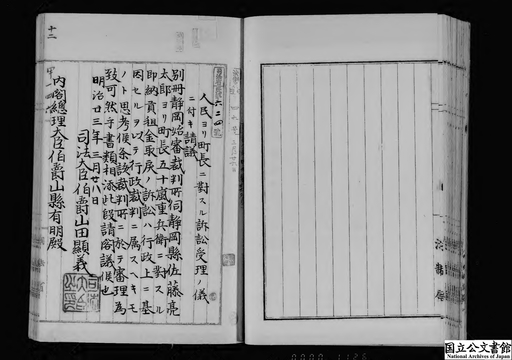 六二四号
人民ヨリ町長ニ對スル訴訟受理ノ儀
ニ付キ請議
別冊静岡始審裁判所伺静岡縣佐藤亮
太郎ヨリ町長五十嵐重兵衛ニ對スル
即納貢租金取戻ノ訴訟ハ行政上ニ基
因セルヲ以テ行政裁判ニ属スヘキモ
ノト思考候条該裁判所ニ於テ審理為
致可然乎書類相添此段請閣議候也
明治廿三年三月廿八日
司法大臣伯爵山田顯義
内閣總理大臣伯爵山縣有朋殿
十二
司法省
0000 1126
国立公文書館
National Archives of Japan